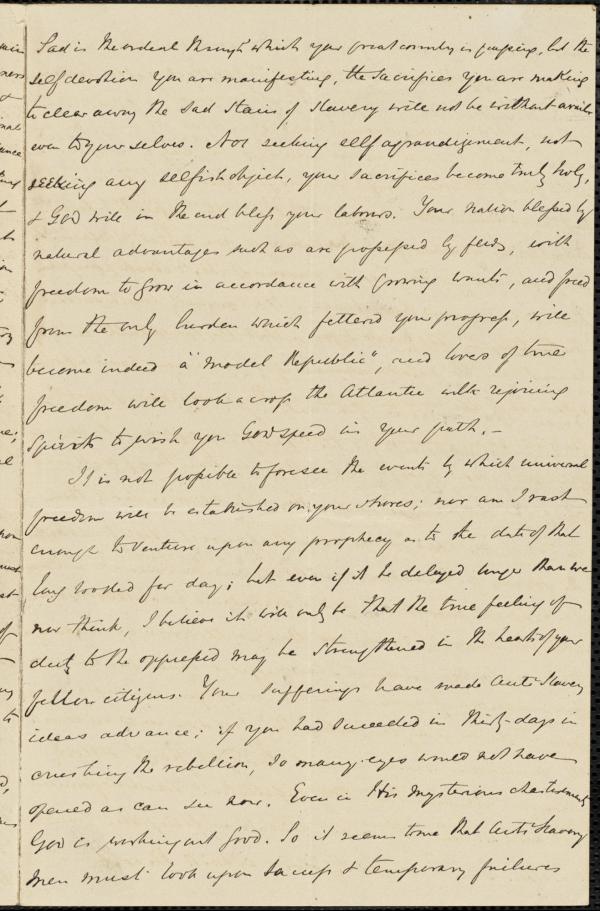 Sad is the ordeal through which your great country is passing, but the
self devotion you are manifesting, the sacrifices you are making
to clear away the sad stain of slavery will not be without avail
even to yourselves. Not seeking self agrandizement, not
seeking any selfish object, your sacrifices become truly holy,
& God will in the end bless your labours. Your nation blessed by
natural advantages such as are possessed by few, with
freedom to grow in accordance with growing wants, and freed
from the only burden which fettered your progress, will
become indeed a "model Republic", and lovers of true
freedom will look across the Atlantic with rejoicing
spirits to wish you God speed in your path. –
It is not possible to foresee the events by which universal
freedom will be established on your shores; nor am I rash
enough to venture upon any prophecy as to the date of that
long looked for day; but even if it be delayed longer than we
now think, I believe it will only be that the true feeling of
duty to the oppressed may be strengthened in the hearts of your
fellow citizens. Your sufferings have made Anti Slavery
ideas advance; if you had succeeded in thirty-days in
crushing the rebellion, so many eyes would not have
opened as can see now. Even in His mysterious chastisements
God is working out good. So it seems to me that Anti Slavery
men must look upon success & temporary failures